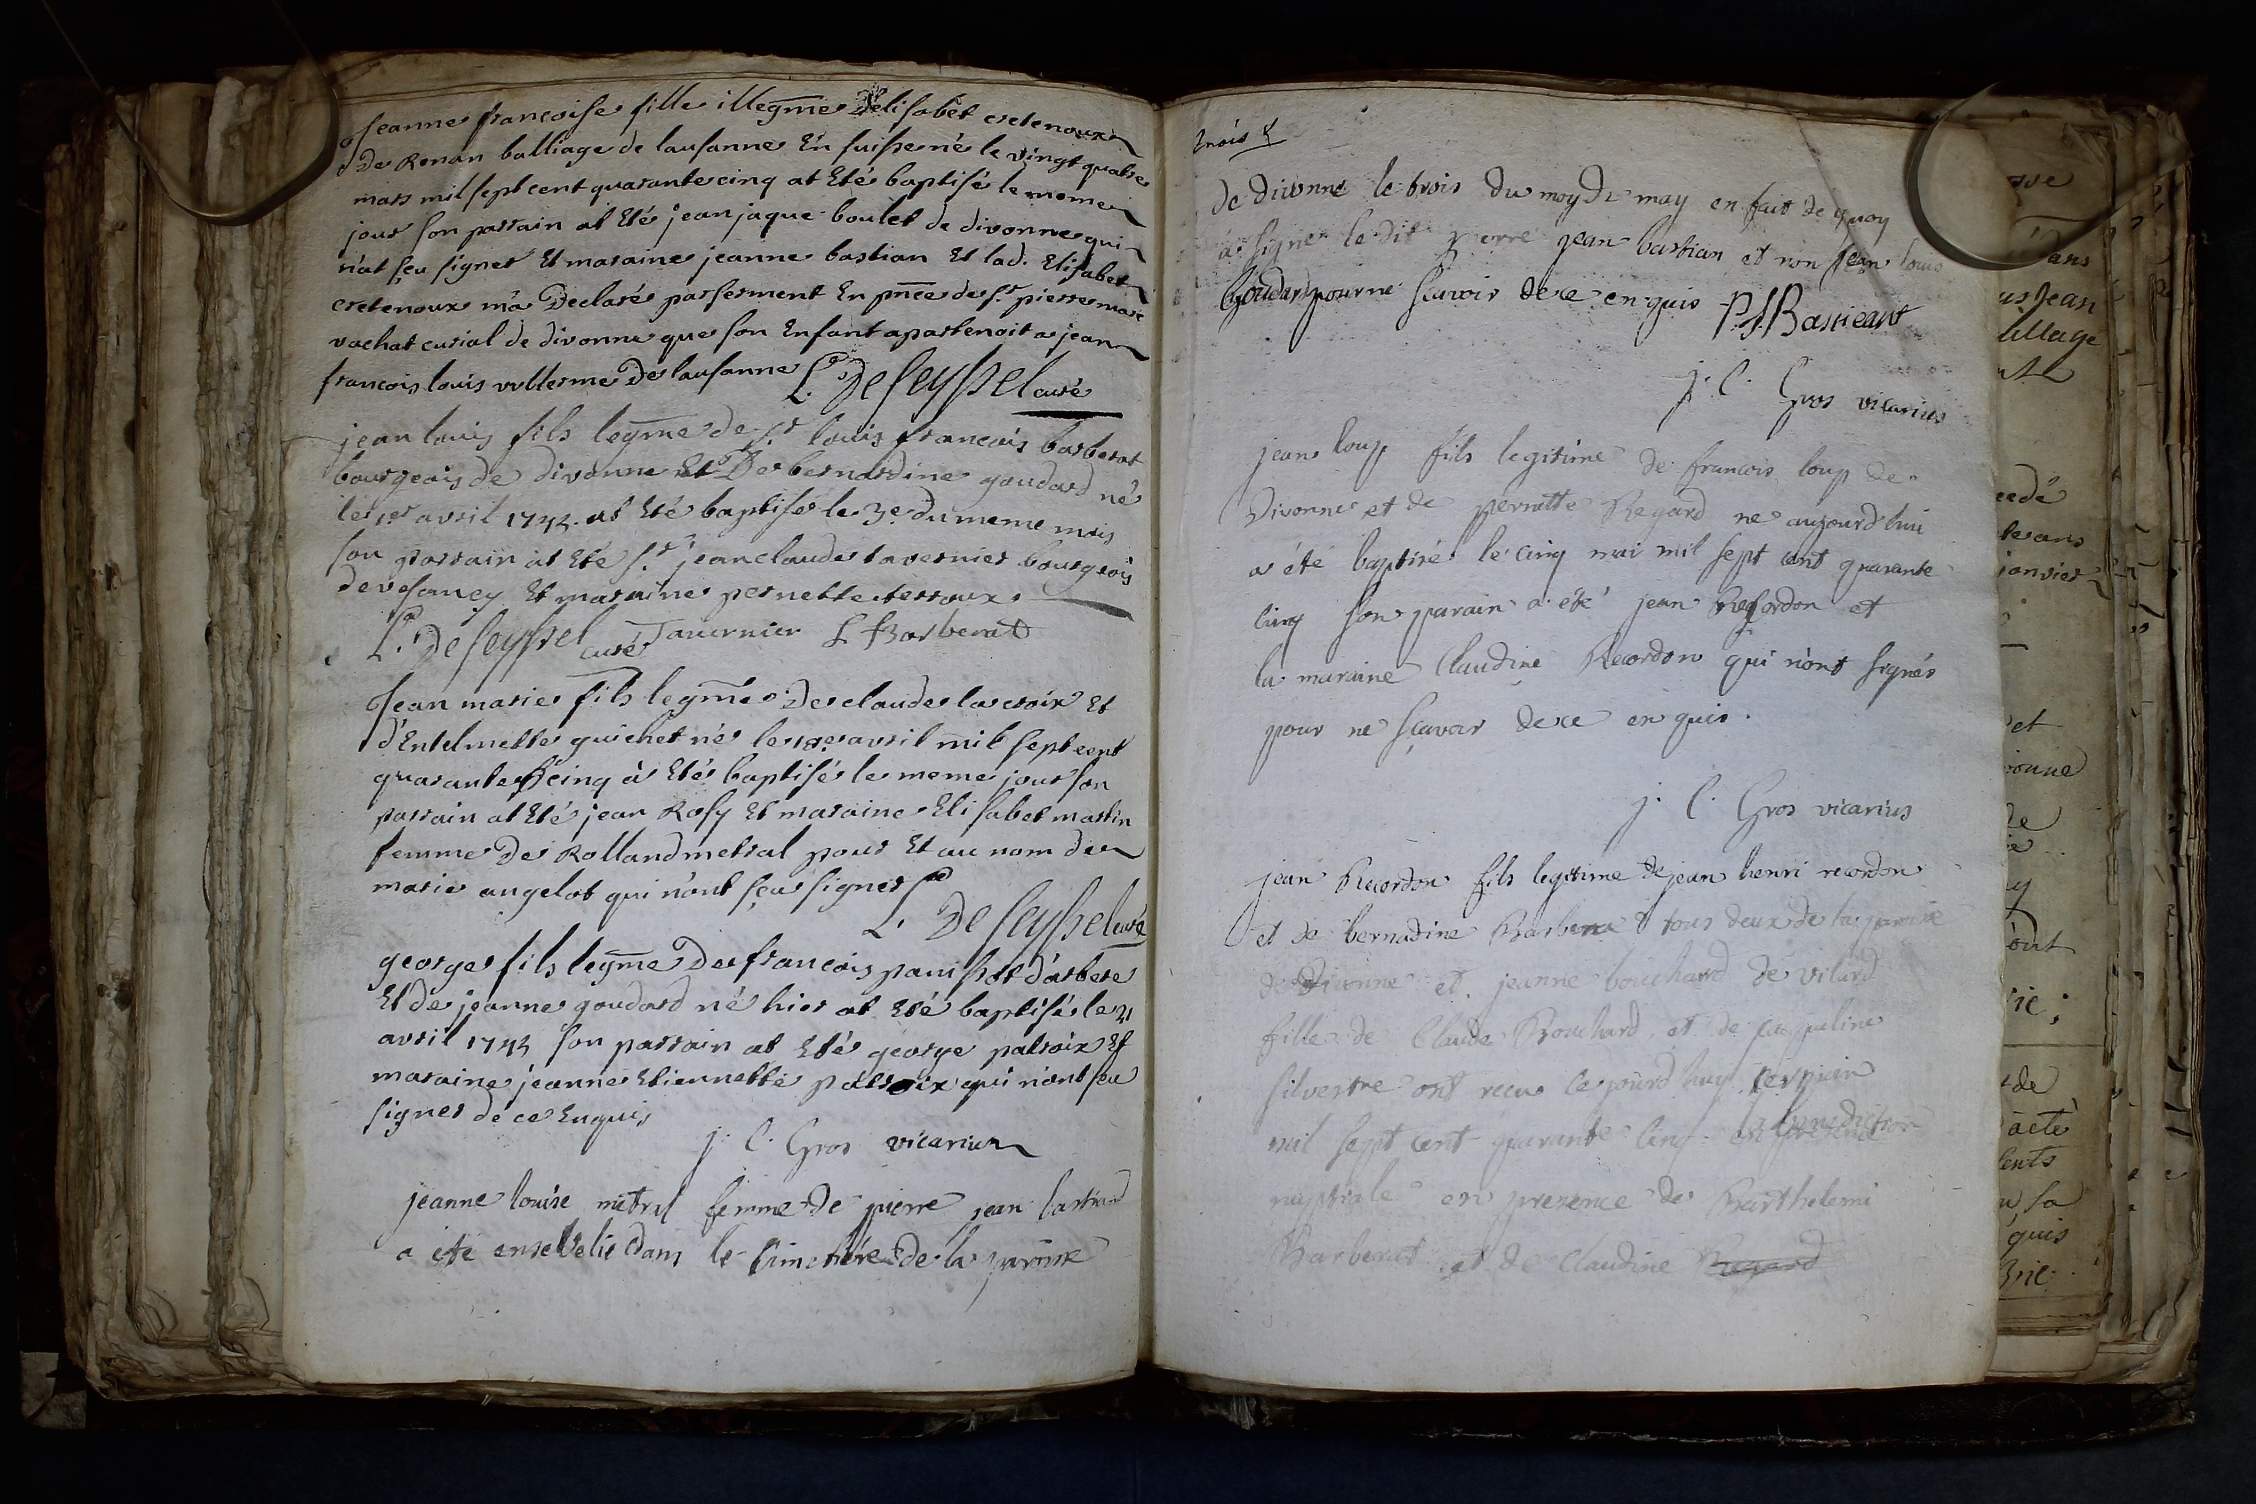 Jeanne francoise fille illegme Delisabet cretenoux
De Renan balliage de lausanne En suisse né le vingt quatre
mars mil sept cent quarante cinq at Eté baptisé le meme
jour son parrain at Eté jean jaque boulet de divonne qui
n'at sçu signer Et maraine jeanne bastian Et lad. Elisabet
cretenoux m'a Declaré par serment En pnce de sr. pierre marc
vachat curial de divonne que son Enfant apartenoit a jean
francois louis vullerme De lausanne L. De Seyssel curé
jean louis fils legme de sr louis francois barberat
bourgeois de divonne Et De bernardine goudard né
le 1er avril 1745 at Eté baptisé le 3e du meme mois
son parrain at Eté sr. jean claude tavernier bourgeois
de vesancy Et maraine pernette terroux
L. De Seyssel curé Tavernier L Barberat
Jean marie fils legme De claude lacroix Et
d'Entelmette guichet né le avril mil sept cent
quarante cinq à Eté baptisé le meme jour son
parrain at Eté jean Rosy Et maraine Elisabet martin
femme De Rolland metral pour Et au nom de
marie angelot qui n'ont sçu signer
L. De Seyssel curé
george fils legme De francois panissot d'arbere
Et de jeanne goudard né hier at Eté baptisé le 21
avril 1745 son parrain at Eté george patroix Et
maraine jeanne Etiennette patroix qui n'ont seu
signer de ce Enquis
j. C. Gros vicarius
jeanne louise metral femme de pierre jean bastian
a été ensevelie dans le Cimetiere de la paroisse
de divonne le trois du moy de may en fait de quoy
a signé le dit pierre jean bastian et non jean louis
goudard pour ne scavoir de ce enquis P. J. Bastieant
j. C. Gros vicarius
jean loup fils legitime de francois loup de
Divonne et de pernette Regard ne aujourd'hui
a été baptisé le cinq mai mil sept cent quarante
cinq son parain a été jean Recordon et
la maraine Claudine Recordon qui n'ont signés
pour ne sçavoir de ce enquis.
j. C. Gros vicarius
jean Recordon fils legitime de jean henri recordon
et de bernadine Barberat tous deux de la paroisse
de Divonne et jeanne bouchard de vilard
fille de Claude Bouchard et de jaqueline
silvestre ont recu ce jourd'huy juin
mil sept cent quarante cinq la benediction
nuptiale en presence de Barthelemi
Barberat et de Claudine Regard